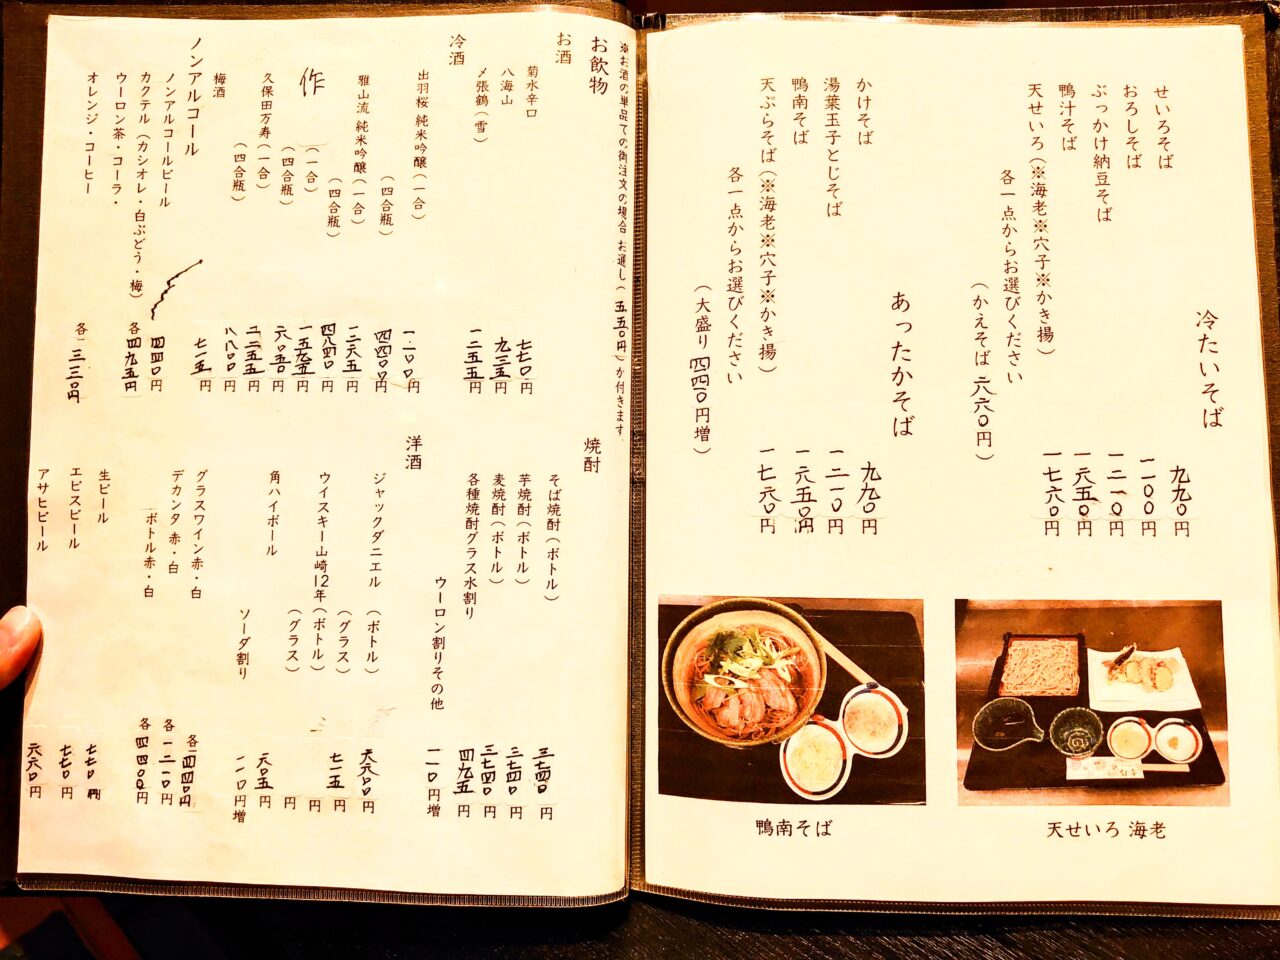 冷たいそば
せいろそば 九九〇円
おろしそば 一一〇〇円
ぶっかけ納豆そば 一二一〇円
鴨汁そば 一六五〇円
天せいろ(※海老※穴子※かき揚) 一七六〇円
各一点からお選びください
(かえそば 六六〇円)
あったかそば
かけそば 九九〇円
湯葉玉子とじそば 一二一〇円
鴨南そば 一六五〇円
天ぷらそば(※海老※穴子※かき揚) 一七六〇円
各一点からお選びください
(大盛り 四四〇円増)
天せいろ 海老
鴨南そば
※お酒の単品での御注文の場合 お通し(五五〇円)が付きます。
お飲物
お酒
菊水辛口 七七〇円
八海山 九三五円
〆張鶴(雪) 一二五五円
冷酒
出羽桜 純米吟醸(一合) 一一〇〇円
(四合瓶) 四四〇〇円
雅山流 純米吟醸(一合) 一二六五円
(四合瓶) 四八四〇円
作 (一合) 一五九五円
(四合瓶) 六〇五〇円
久保田万寿(一合)
(四合瓶)
梅酒 七一五円
ノンアルコール
ノンアルコールビール 四四〇円
カクテル(カシオレ・白ぶどう・梅) 各四九五円
ウーロン茶・コーラ・
オレンジ・コーヒー 各 三三〇円
焼酎
そば焼酎(ボトル) 三七四〇円
芋焼酎(ボトル) 三七四〇円
麦焼酎(ボトル) 三七四〇円
各種焼酎グラス水割り 四九五円
ウーロン割りその他 一一〇円増
洋酒
ジャックダニエル (ボトル) 六六〇〇円
(グラス) 七一五円
ウイスキー山崎12年(ボトル) 円
(グラス) 円
角ハイボール 六〇五円
ソーダ割り 一一〇円増
グラスワイン赤・白
デカンタ 赤・白 各一二一〇円
ボトル赤・白 各四四〇〇円
生ビール 七七〇円
エビスビール 七七〇円
アサヒビール 六六〇円